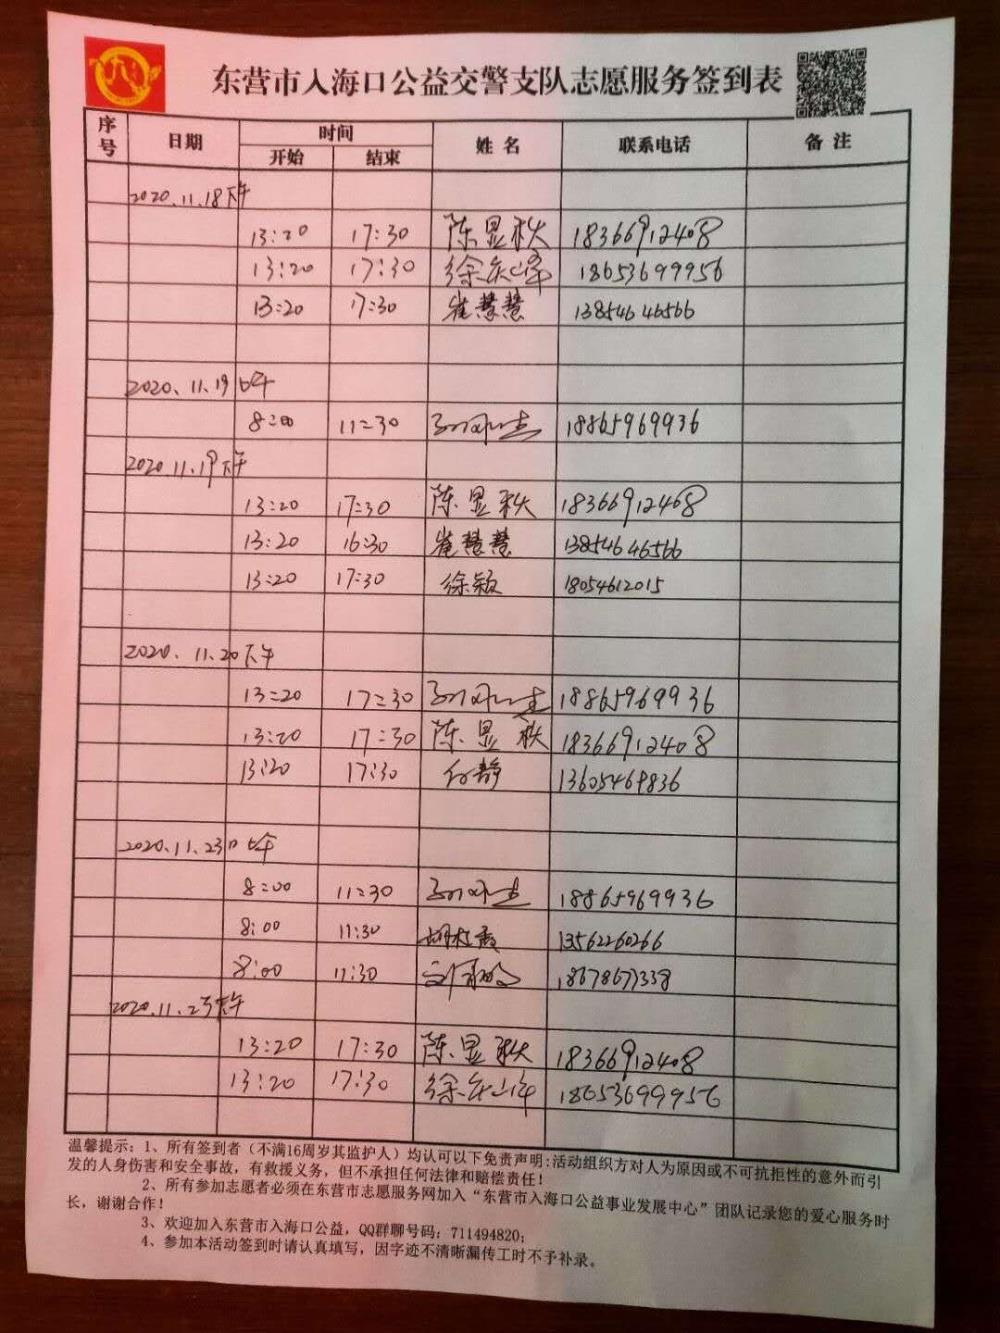 东营市入海口公益交警支队志愿服务签到表
序号 日期 时间 姓名 联系电话 备注
开始 结束
2020.11.18下午
13:20 17:30 陈显秋 18366912408
13:20 17:30 徐庆峰 18653699956
13:20 17:30 崔慧慧 13854646566
2020.11.19上午
8:00 11:30 18865969936
2020.11.19下午
13:20 17:30 陈显秋 18366912408
13:20 16:30 崔慧慧 13854646566
13:20 17:30 徐颖 18054612015
2020.11.20下午
13:20 17:30 18865969936
13:20 17:30 陈显秋 18366912408
13:20 17:30 付静 13605469836
2020.11.23日上午
8:00 11:30 18865969936
8:00 11:30 13562260266
8:00 11:30 18678677338
2020.11.23下午
13:20 17:30 陈显秋 18366912408
13:20 17:30 徐庆峰 18653699956
温馨提示:1、所有签到者(不满16周岁其监护人)均认可以下免责声明:活动组织方对人为原因或不可抗拒性的意外而引
发的人身伤害和安全事故,有救援义务,但不承担任何法律和赔偿责任!
2、所有参加志愿者必须在东营市志愿服务网加入“东营市入海口公益事业发展中心”团队记录您的爱心服务时
长,谢谢合作!
3、欢迎加入东营市入海口公益,QQ群聊号码:711494820;
4、参加本活动签到时请认真填写,因字迹不清晰漏传工时不予补录。